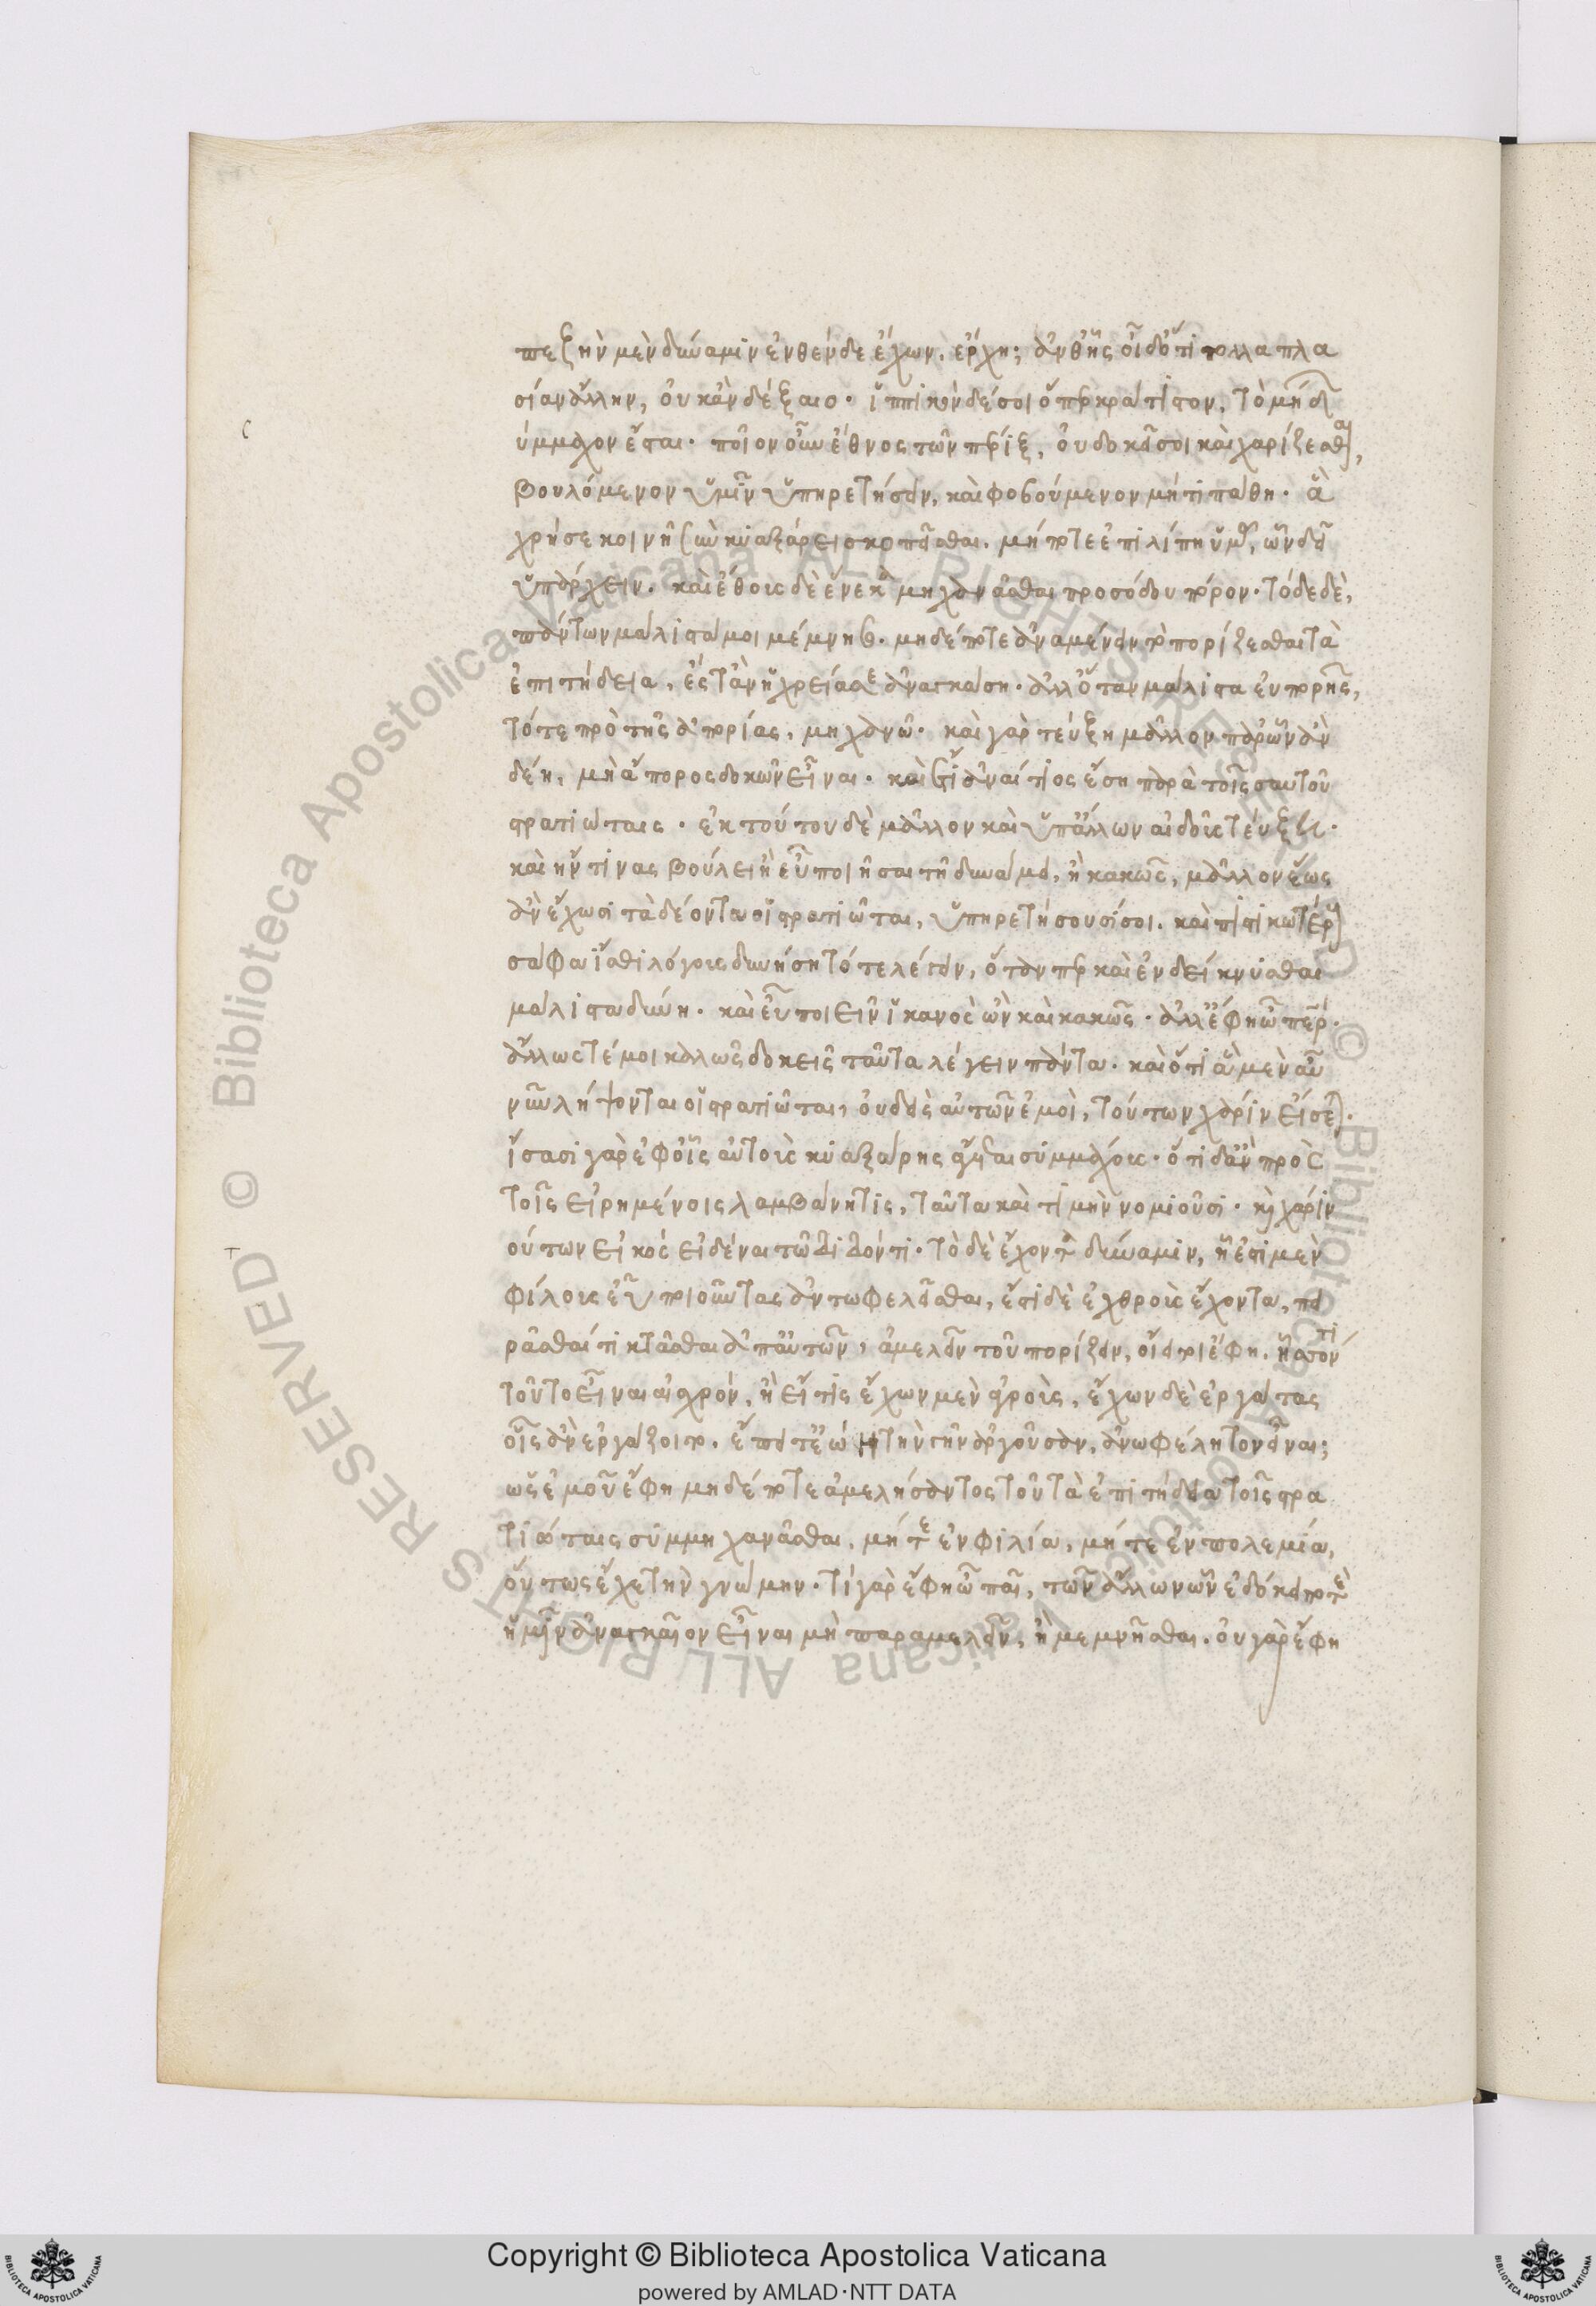 πεζὴν μὲν δύναμιν ἐνθένδε ἔχων. ἔρχη; ἀνθ' ἧς οἶδ' ὅτι πολλαπλα
σίαν ἄλλην, οὐκ ἂν δέξαιο. ἱππικὸν δέ σοι ὅπερ κράτιστον, τὸ μήδ
ύμμαχον ἔσται. ποῖον οὖν ἔθνος τῶν πέριξ, οὐ δοκεῖ σοι καὶ χαρίζεσθαι
βουλόμενον ὑμῖν ὑπηρετήσειν, καὶ φοβούμενον μή τι πάθη. ἃ
χρή σε κοινῆ σὺν κυαξάρει σκοπεῖσθαι. μήποτε ἐπιλίπη ὑμᾶς, ὧν δεῖ
ὑπάρχειν. καὶ ἔθους δὲ ἕνεκα μηχανᾶσθαι προσόδου πόρον. τόδε δὲ,
πάντων μάλιστά μοι μέμνησο. μηδέποτε ἀναμένειν τὸ πορίζεσθαι τὰ
ἐπιτήδεια, ἔς τ' ἂν ἡ χρεία σε ἀναγκάση. ἀλλ' ὅταν μάλιστα εὐπορῆς,
τότε πρὸ τῆς ἀπορίας, μηχανῶ. καὶ γὰρ τεύξη μᾶλλον παρ' ὧν ἂν
δέη, μὴ ἄπορος δοκῶν εἶναι. καὶ ἔτι ἀναίτιος ἔση παρὰ τοῖς σαυτοῦ
στρατιώταις. ἐκ τούτου δὲ μᾶλλον καὶ ὑπ' ἄλλων αἰδοῦς τεύξει.
καὶ ἤν τινας βούλει ἢ εὖ ποιῆσαι τῆ δυνάμει, ἢ κακῶς, μᾶλλον ἕως
ἂν ἔχωσι τὰ δέοντα οἱ στρατιῶται, ὑπηρετήσουσί σοι. καὶ πειστικωτέρους
σάφα ἴσθι λόγους δυνήση τότε λέγειν, ὅταν περ καὶ ἐνδείκνυσθαι
μάλιστα δύνη. καὶ εὖ ποιεῖν ἱκανὸς ὢν καὶ κακῶς. ἀλλ' ἔφη ὦ πάτερ.
ἄλλως τέ μοι καλῶς δοκεῖς ταῦτα λέγειν πάντα. καὶ ὅτι ἃ μὲν αὖ
νῦν λήψονται οἱ στρατιῶται, οὐδεὶς αὐτῶν ἐμοὶ, τούτων χάριν εἴσεται.
ἴσασι γὰρ ἐφ' οἷς αὐτοὺς κυαξάρης ἄγεται συμμάχους. ὅτι δ' ἂν πρὸς
τοῖς εἰρημένοις λαμβάνη τις, ταῦτα καὶ τιμὴν νομιοῦσι. καὶ χάριν
ούτων εἰκὸς εἰδέναι τῶ διδόντι. τὸ δὲ ἔχοντα δύναμιν, ἧ ἔστι μὲν
φίλους εὖ ποιοῦντας ἀντωφελεῖσθαι, ἔστι δὲ ἐχθροὺς ἔχοντα, πει
ρᾶσθαί τι κτᾶσθαι ἀπ' αὐτῶν, ἀμελεῖν τοῦ πορίζειν, οἴει τι ἔφη. ἧττόν τι
τοῦτο εἶναι αἰσχρόν, ἢ εἴ τις ἔχων μὲν ἀγροὺς, ἔχων δὲ ἐργάτας
οἷς ἂν ἐργάζοιτο. ἔπειτ' ἐώη τὴν γῆν ἀργοῦσαν, ἀνωφέλητον εἶναι;
ὡς ἐμοῦ ἔφη μηδέποτε ἀμελήσαντος τοῦ τὰ ἐπιτήδεια τοῖς στρα
τιώταις συμμηχανᾶσθαι, μήτε ἐν φιλία, μήτε ἐν πολεμία,
οὕτως ἔχε τὴν γνώμην. τί γὰρ ἔφη ὦ παῖ, τῶν ἄλλων ὧν ἐδόκει ποτὲ
ἡμῖν ἀναγκαῖον εἶναι μὴ παραμελεῖν, ἦ μέμνησθαι. οὐ γὰρ ἔφη
ς
τ
Copyright © Biblioteca Apostolica Vaticana
powered by AMLAD·NTT DATA